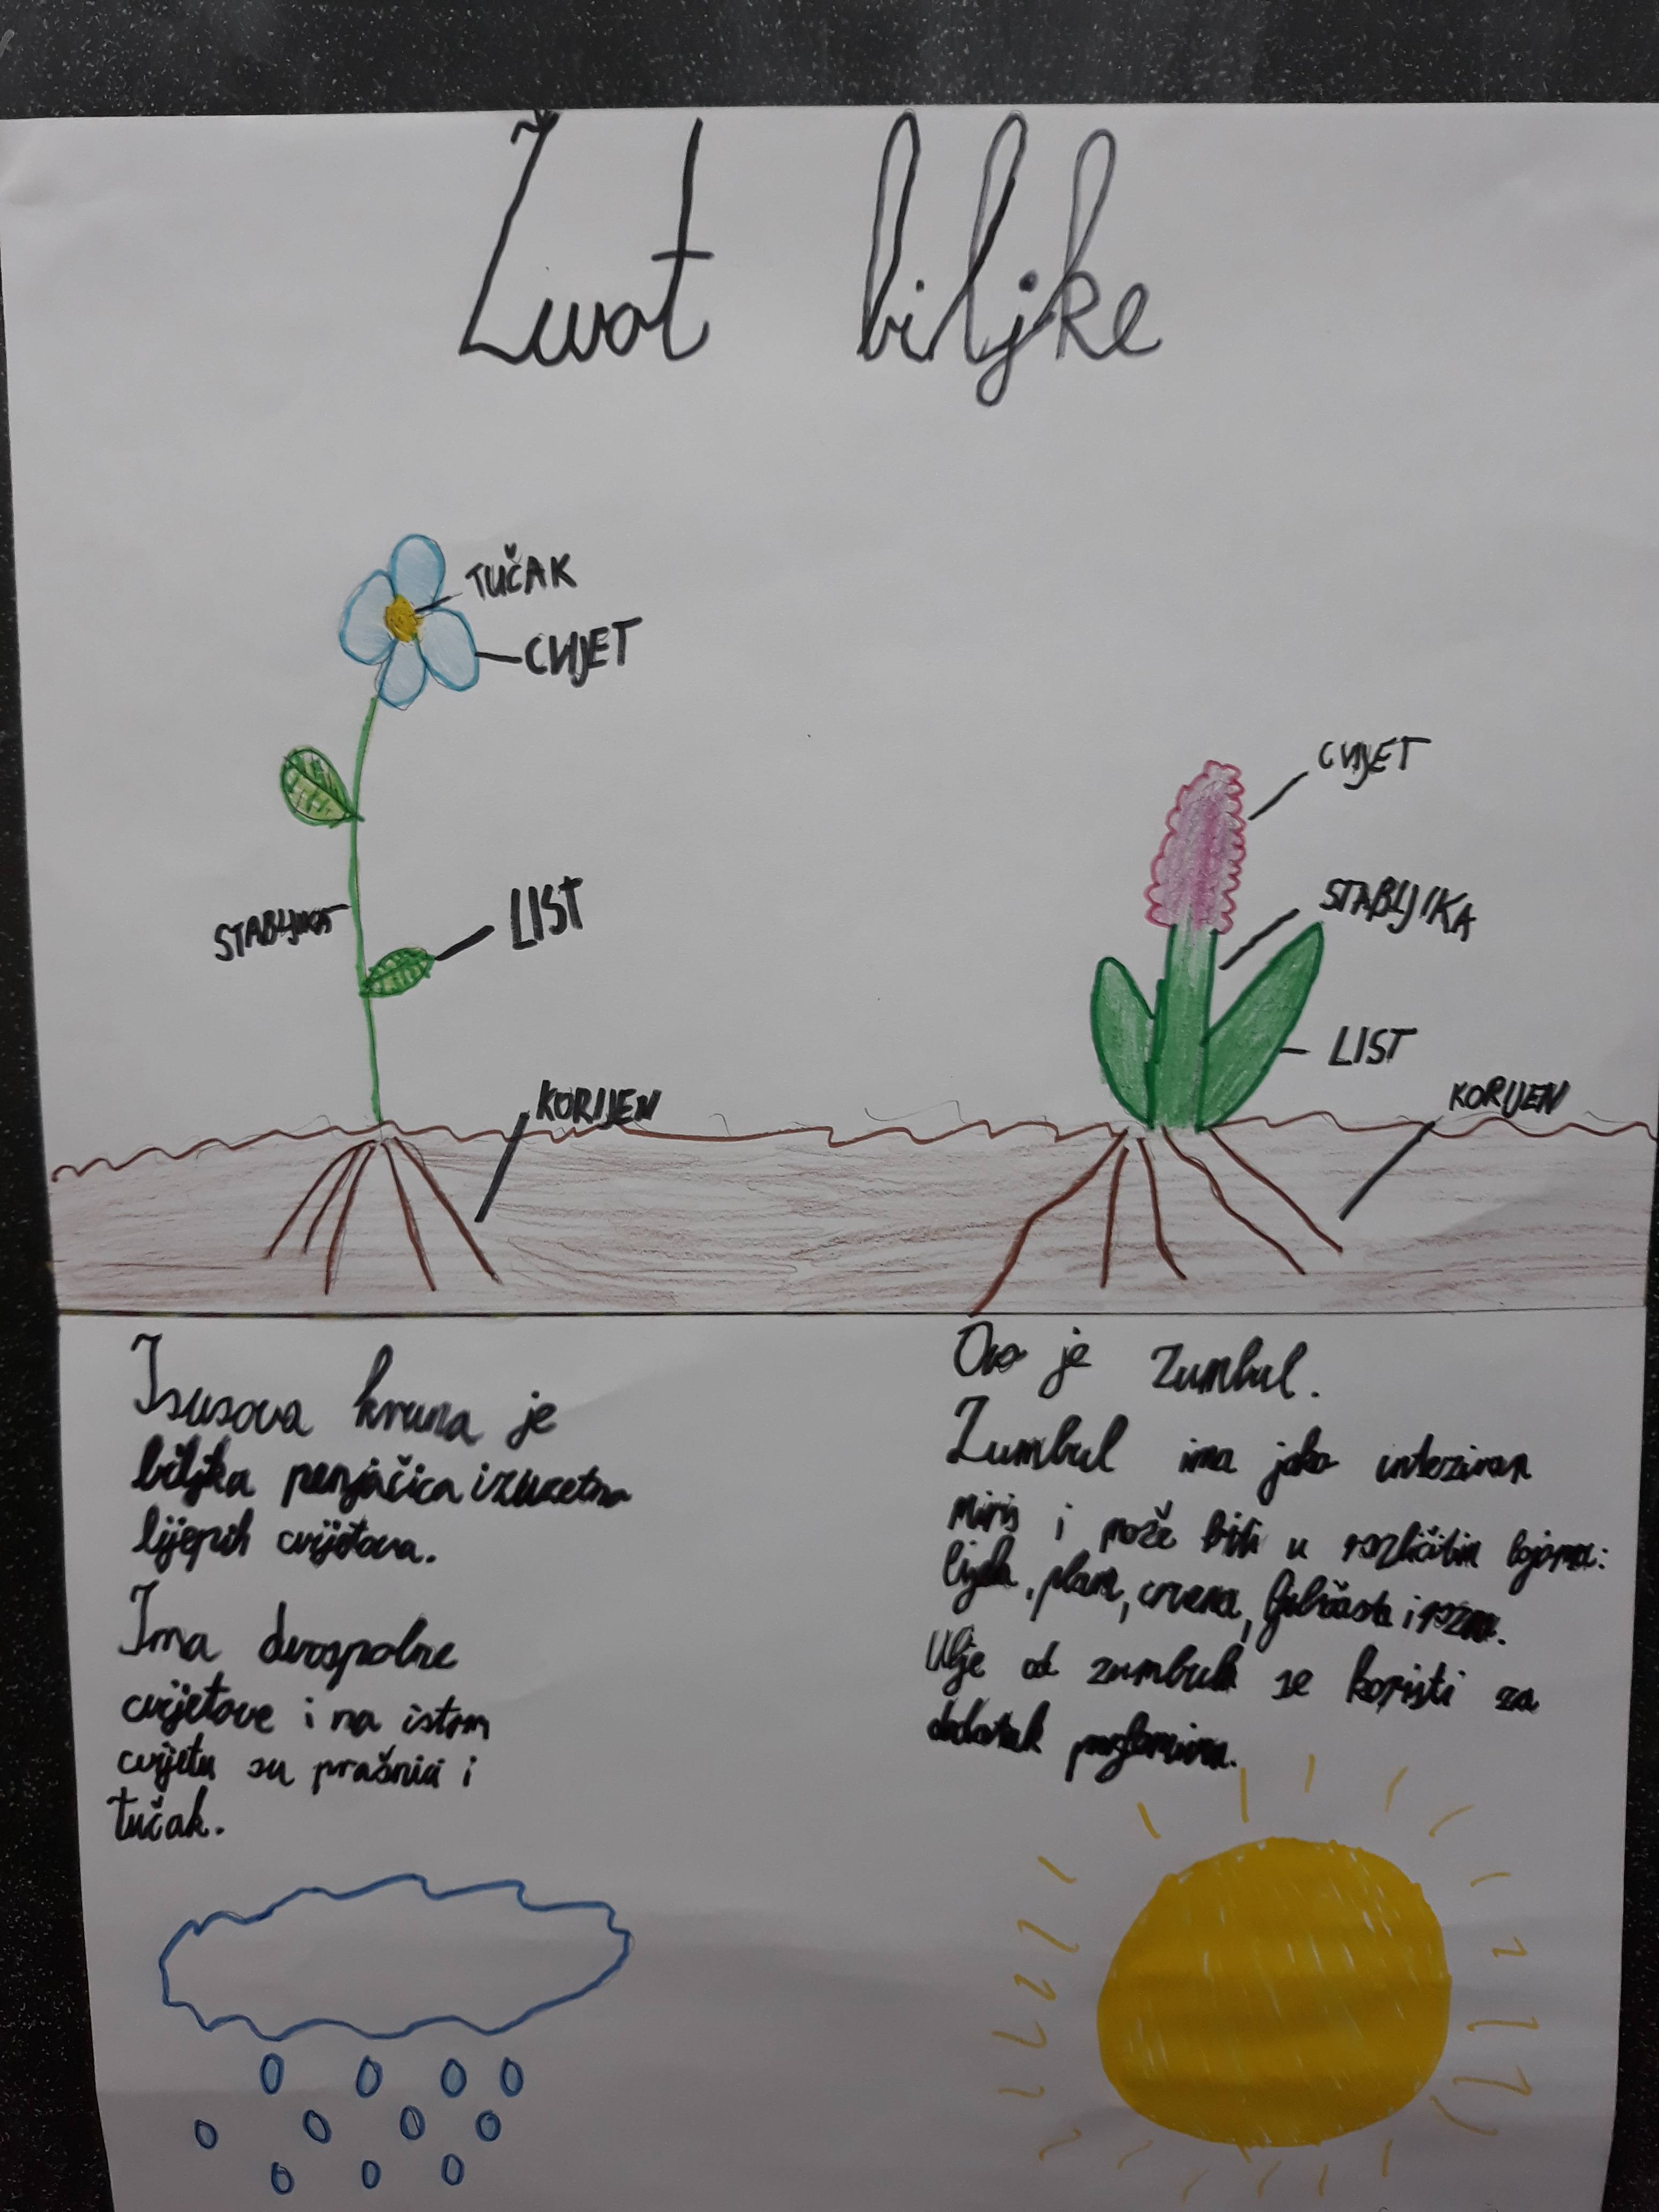 Život biljke
TUČAK
CVIJET
STABLJIKA
LIST
KORIJEN
CVIJET
STABLJIKA
LIST
KORIJEN
Isusova kruna je
biljka penjačica izuzetno
lijepih cvijetova.
Ima dvospolne
cvijetove i na istom
cvijetu su prašnici i
tučak.
Ovo je Zumbul.
Zumbul ima jako inteziran
miris i može biti u različitim bojama:
bijela, plava, crvena, ljubičasta i rozna.
Ulje od zumbula se koristi za
dodatak parfemima.